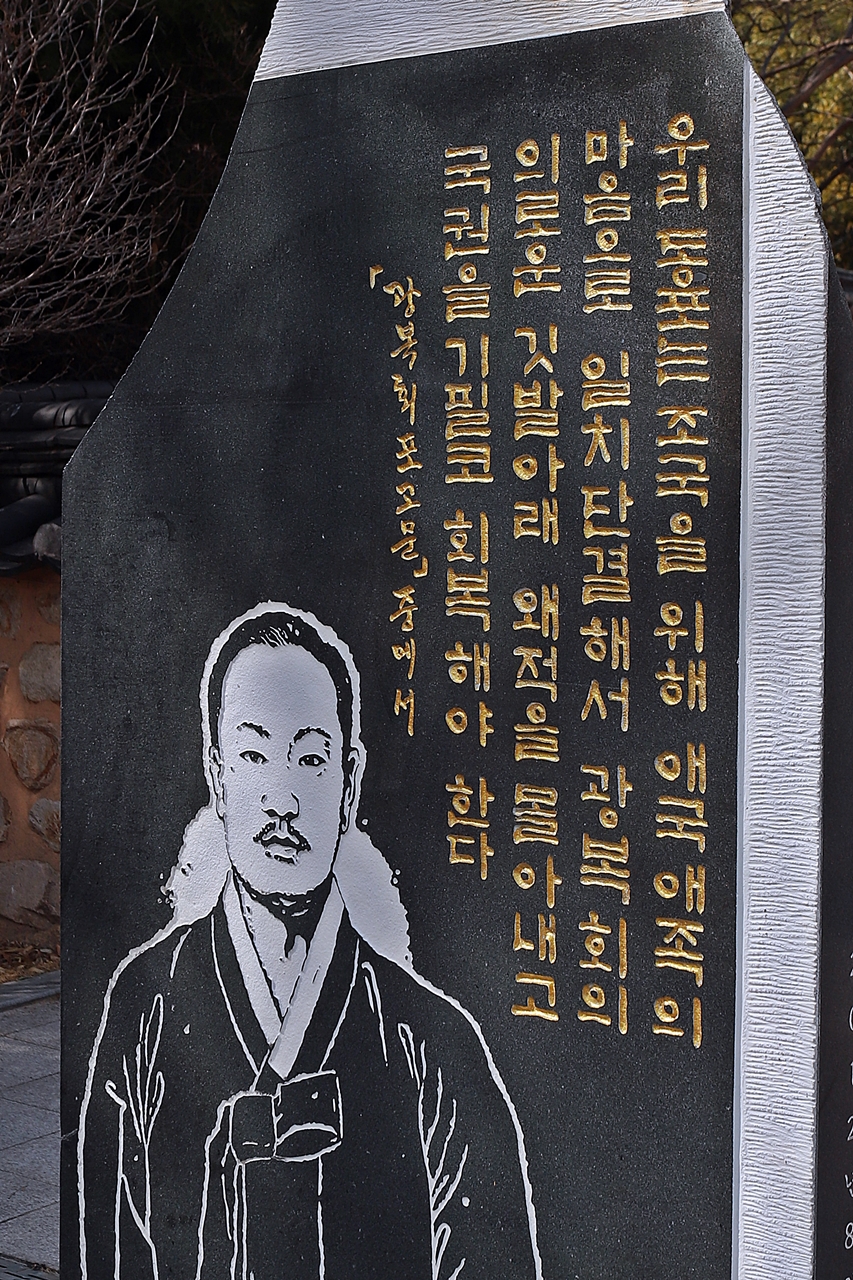 우리 동포는 조국을 위해 애국 애족의
마음으로 일치단결해서 광복회의
의로운 깃발아래 왜적을 몰아내고
국권을 기필코 회복해야 한다
「광복회 포고문」 중에서